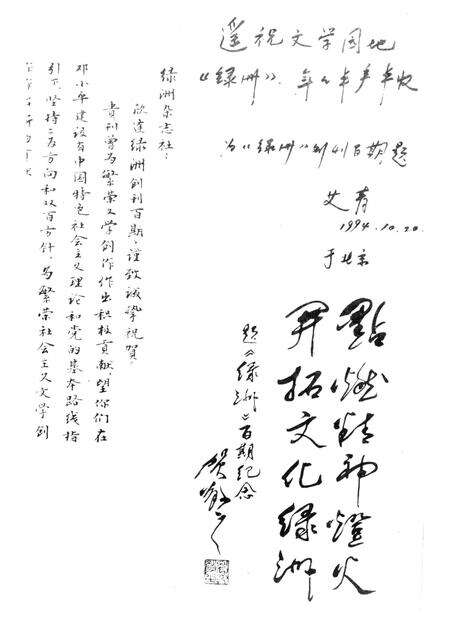 遥祝文学园地
《绿洲》年々丰产丰收
为《绿洲》创刊百期题
艾青
1994.10.20.
于北京
點燃精神燈火
開拓文化绿洲
题《绿洲》百期纪念
贺敬之
绿洲杂志社：
欣逢绿洲创刊百期，谨致诚挚祝贺。
贵刊曾为繁荣文学创作作出积极贡献，望你们在
邓小平建设有中国特色社会主义理论和党的基本路线指
引下，坚持二为方向和双百方针，为繁荣社会主义文学创